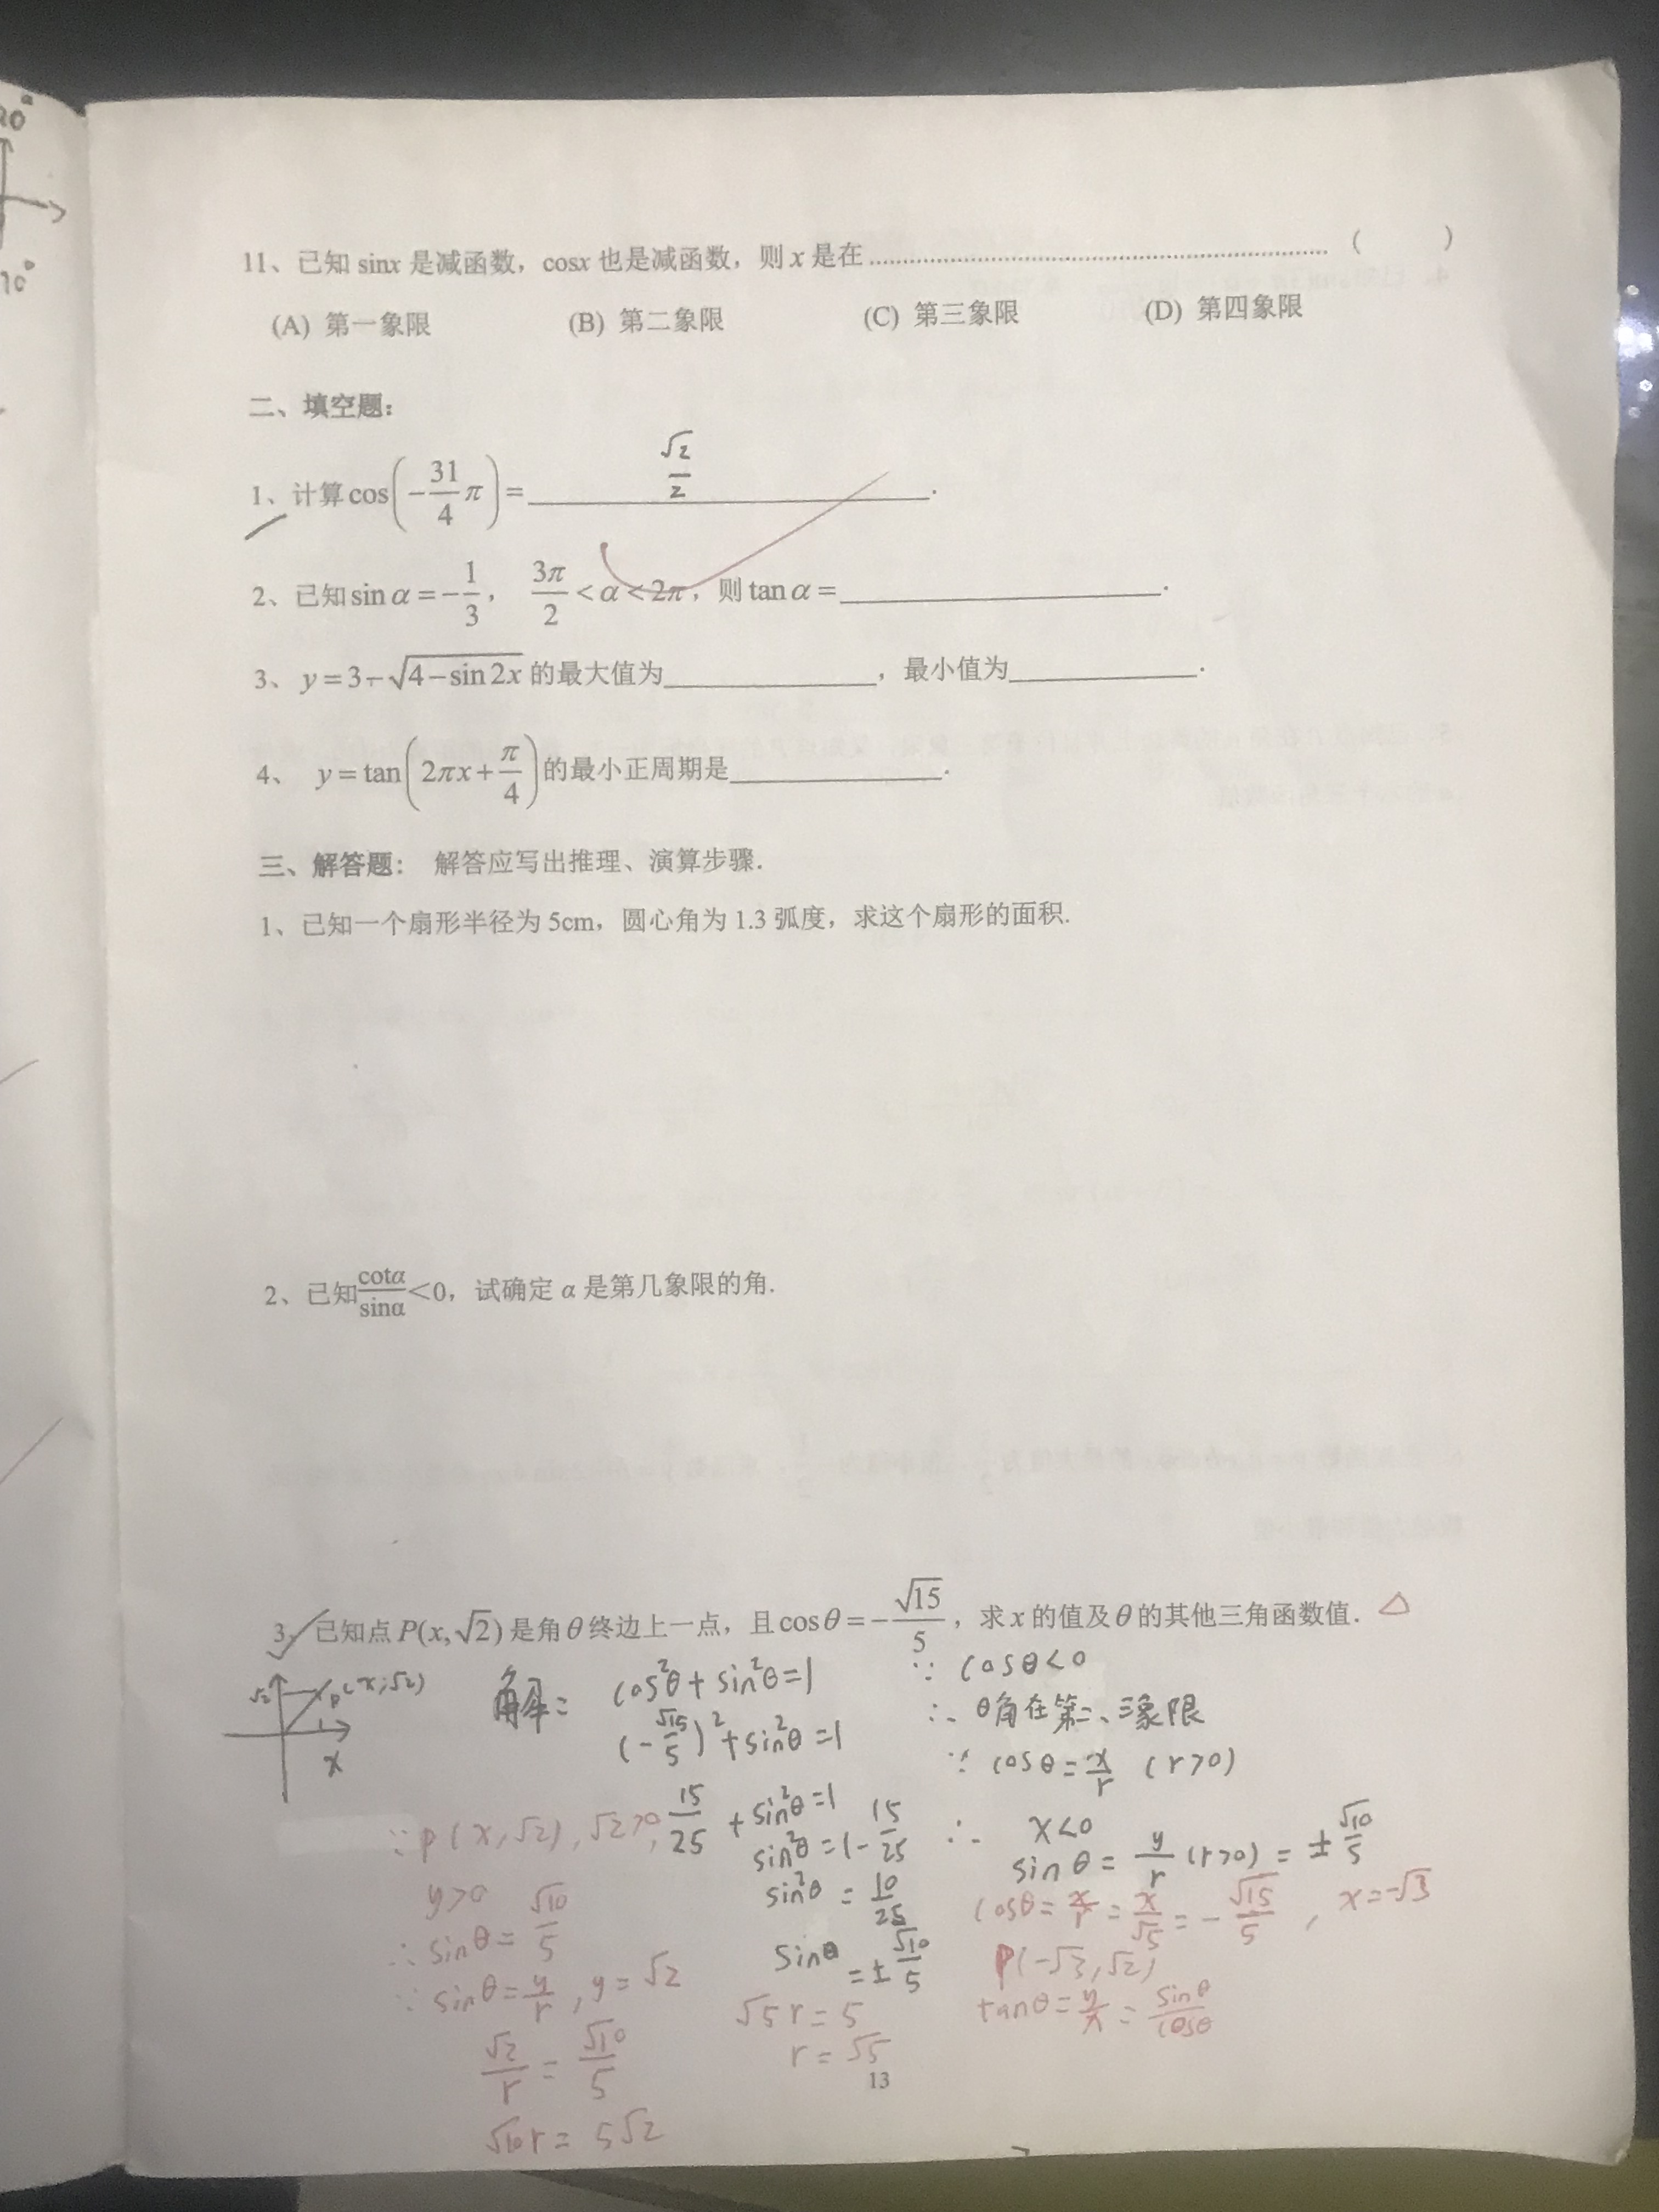 20°
90°
11、已知 sinx 是减函数，cosx 也是减函数，则 x 是在………………………………………（ ）
(A) 第一象限 (B) 第二象限 (C) 第三象限 (D) 第四象限
二、填空题：
1、计算 cos(-31/4 π) = √2/2 .
2、已知 sin α = -1/3， 3π/2 < α < 2π，则 tan α = ____________.
3、y = 3 - √(4 - sin 2x) 的最大值为____________，最小值为____________.
4、 y = tan(2πx + π/4) 的最小正周期是____________.
三、解答题： 解答应写出推理、演算步骤.
1、已知一个扇形半径为 5cm，圆心角为 1.3 弧度，求这个扇形的面积.
2、已知 cotα/sinα < 0，试确定 α 是第几象限的角.
3、已知点 P(x, √2) 是角 θ 终边上一点，且 cos θ = -√15/5，求 x 的值及 θ 的其他三角函数值. △
√2 P(x, √2)
x
解: cos²θ + sin²θ = 1
(-√15/5)² + sin²θ = 1
15/25 + sin²θ = 1
sin²θ = 1 - 15/25
sin²θ = 10/25
sinθ = ±√10/5
∵ cosθ < 0
∴ θ角在第二、三象限
∵ cosθ = x/r (r>0)
∴ x<0
sinθ = y/r (r>0) = ±√10/5
∵ P(x, √2), √2>0,
y>0
∴ sinθ = √10/5
∵ sinθ = y/r, y = √2
√2/r = √10/5
√10 r = 5√2
√5 r = 5
r = √5
cosθ = x/r = x/√5 = -√15/5, x = -√3
P(-√3, √2)
tanθ = y/x = sinθ/cosθ
13